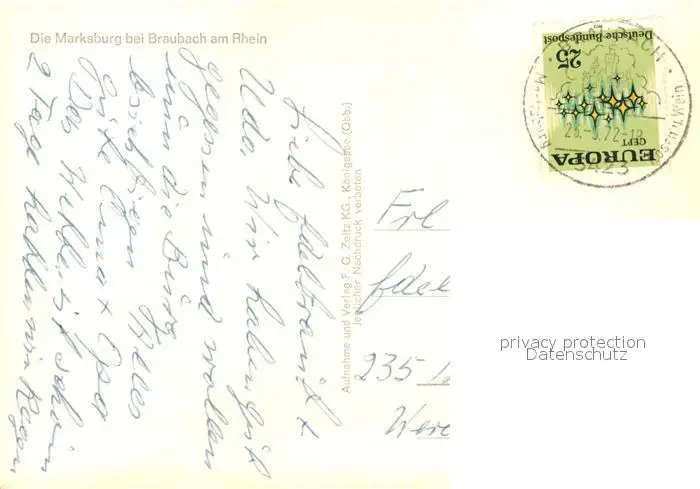 Die Marksburg bei Braubach am Rhein
Liebe Edeltraut +
Udo. Wir haben gut
gegessen und wollen
nun die Burg
besichtigen Alles
Gute Oma + Opa
Das Wetter ist schön
2 Tage hatten wir Regen
Aufnahme und Verlag F. G. Zeitz KG., Königssee (Obb.)
Jeglicher Nachdruck verboten
Frl
Edel
235
Deutsche Bundespost
25
CEPT
EUROPA
5423
privacy protection
Datenschutz